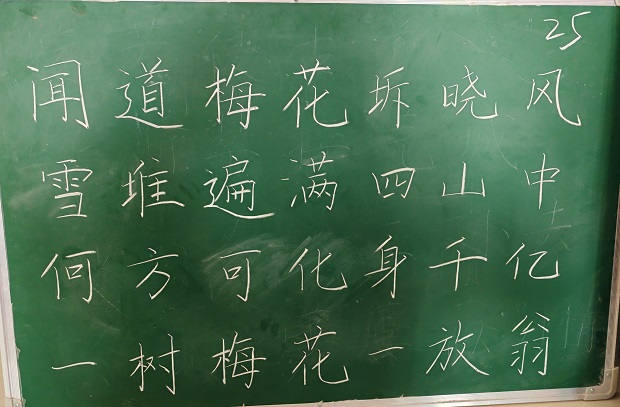 25
闻道梅花坼晓风
雪堆遍满四山中
何方可化身千亿
一树梅花一放翁